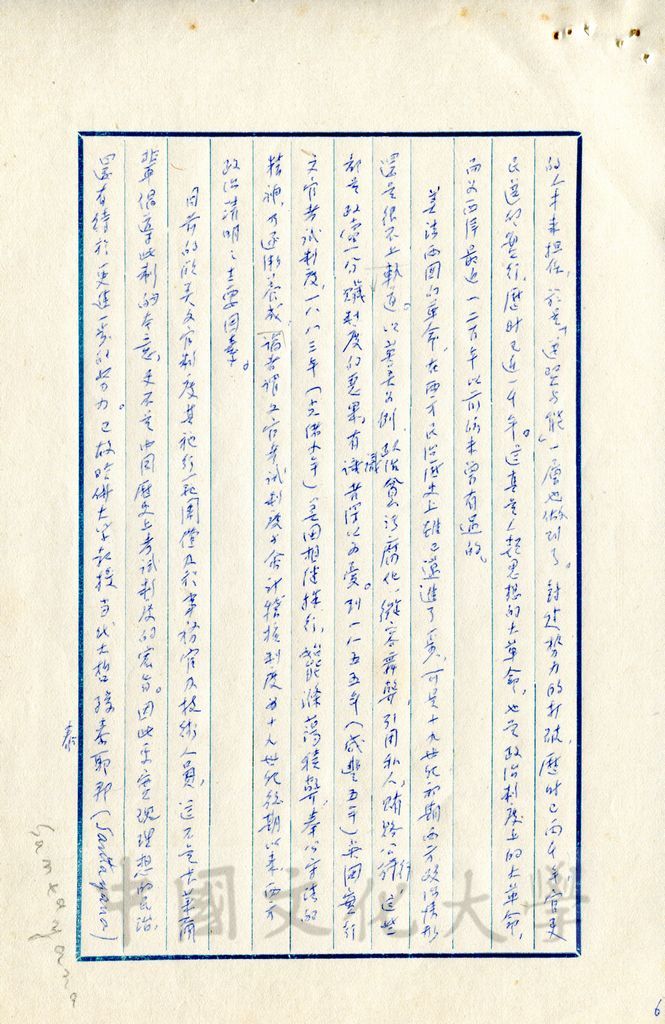 的人才來担任，於是「選賢与能」一層也做到了。封建勢力的打破，歷時已兩千年，官吏
民選的實行，歷時已近一千年。這真是人類思想的大革命，也是政治制度上的大革命，
而为西洋最近一二百年以前所未曾有過的。
美法兩國的革命，在西方民治歷史上雖已邁進了一步，可是十九世紀初期西方政治情形
還是很不上軌道。以英美為例，政治貪污腐化，縱容舞弊，引用私人，賄賂公行，這些
都是政黨分贓制度的惡果，有識者深以為憂。到一八五五年（咸豐五年）英國實行
文官考試制度，一八八三年（光緒九年）美国相继採行，始能滌蕩積弊，奉公守法的
精神，乃逐漸養成。論者謂文官考試制度与會計稽核制度为十九世紀後期以來西方
政治清明之主要因素。
目前的欧美文官制度其施行範圍僅及於事務官及技術人員，這不是大革爾
輩倡導此制的本意，更不是中国歷史上考試制度的宏旨。因此要實現理想的民治，
還有待於更進一步的努力。已故哈佛大学教授当代大哲孫泰耶那（Santayana）
泰
Santayana
中國文化大學
6